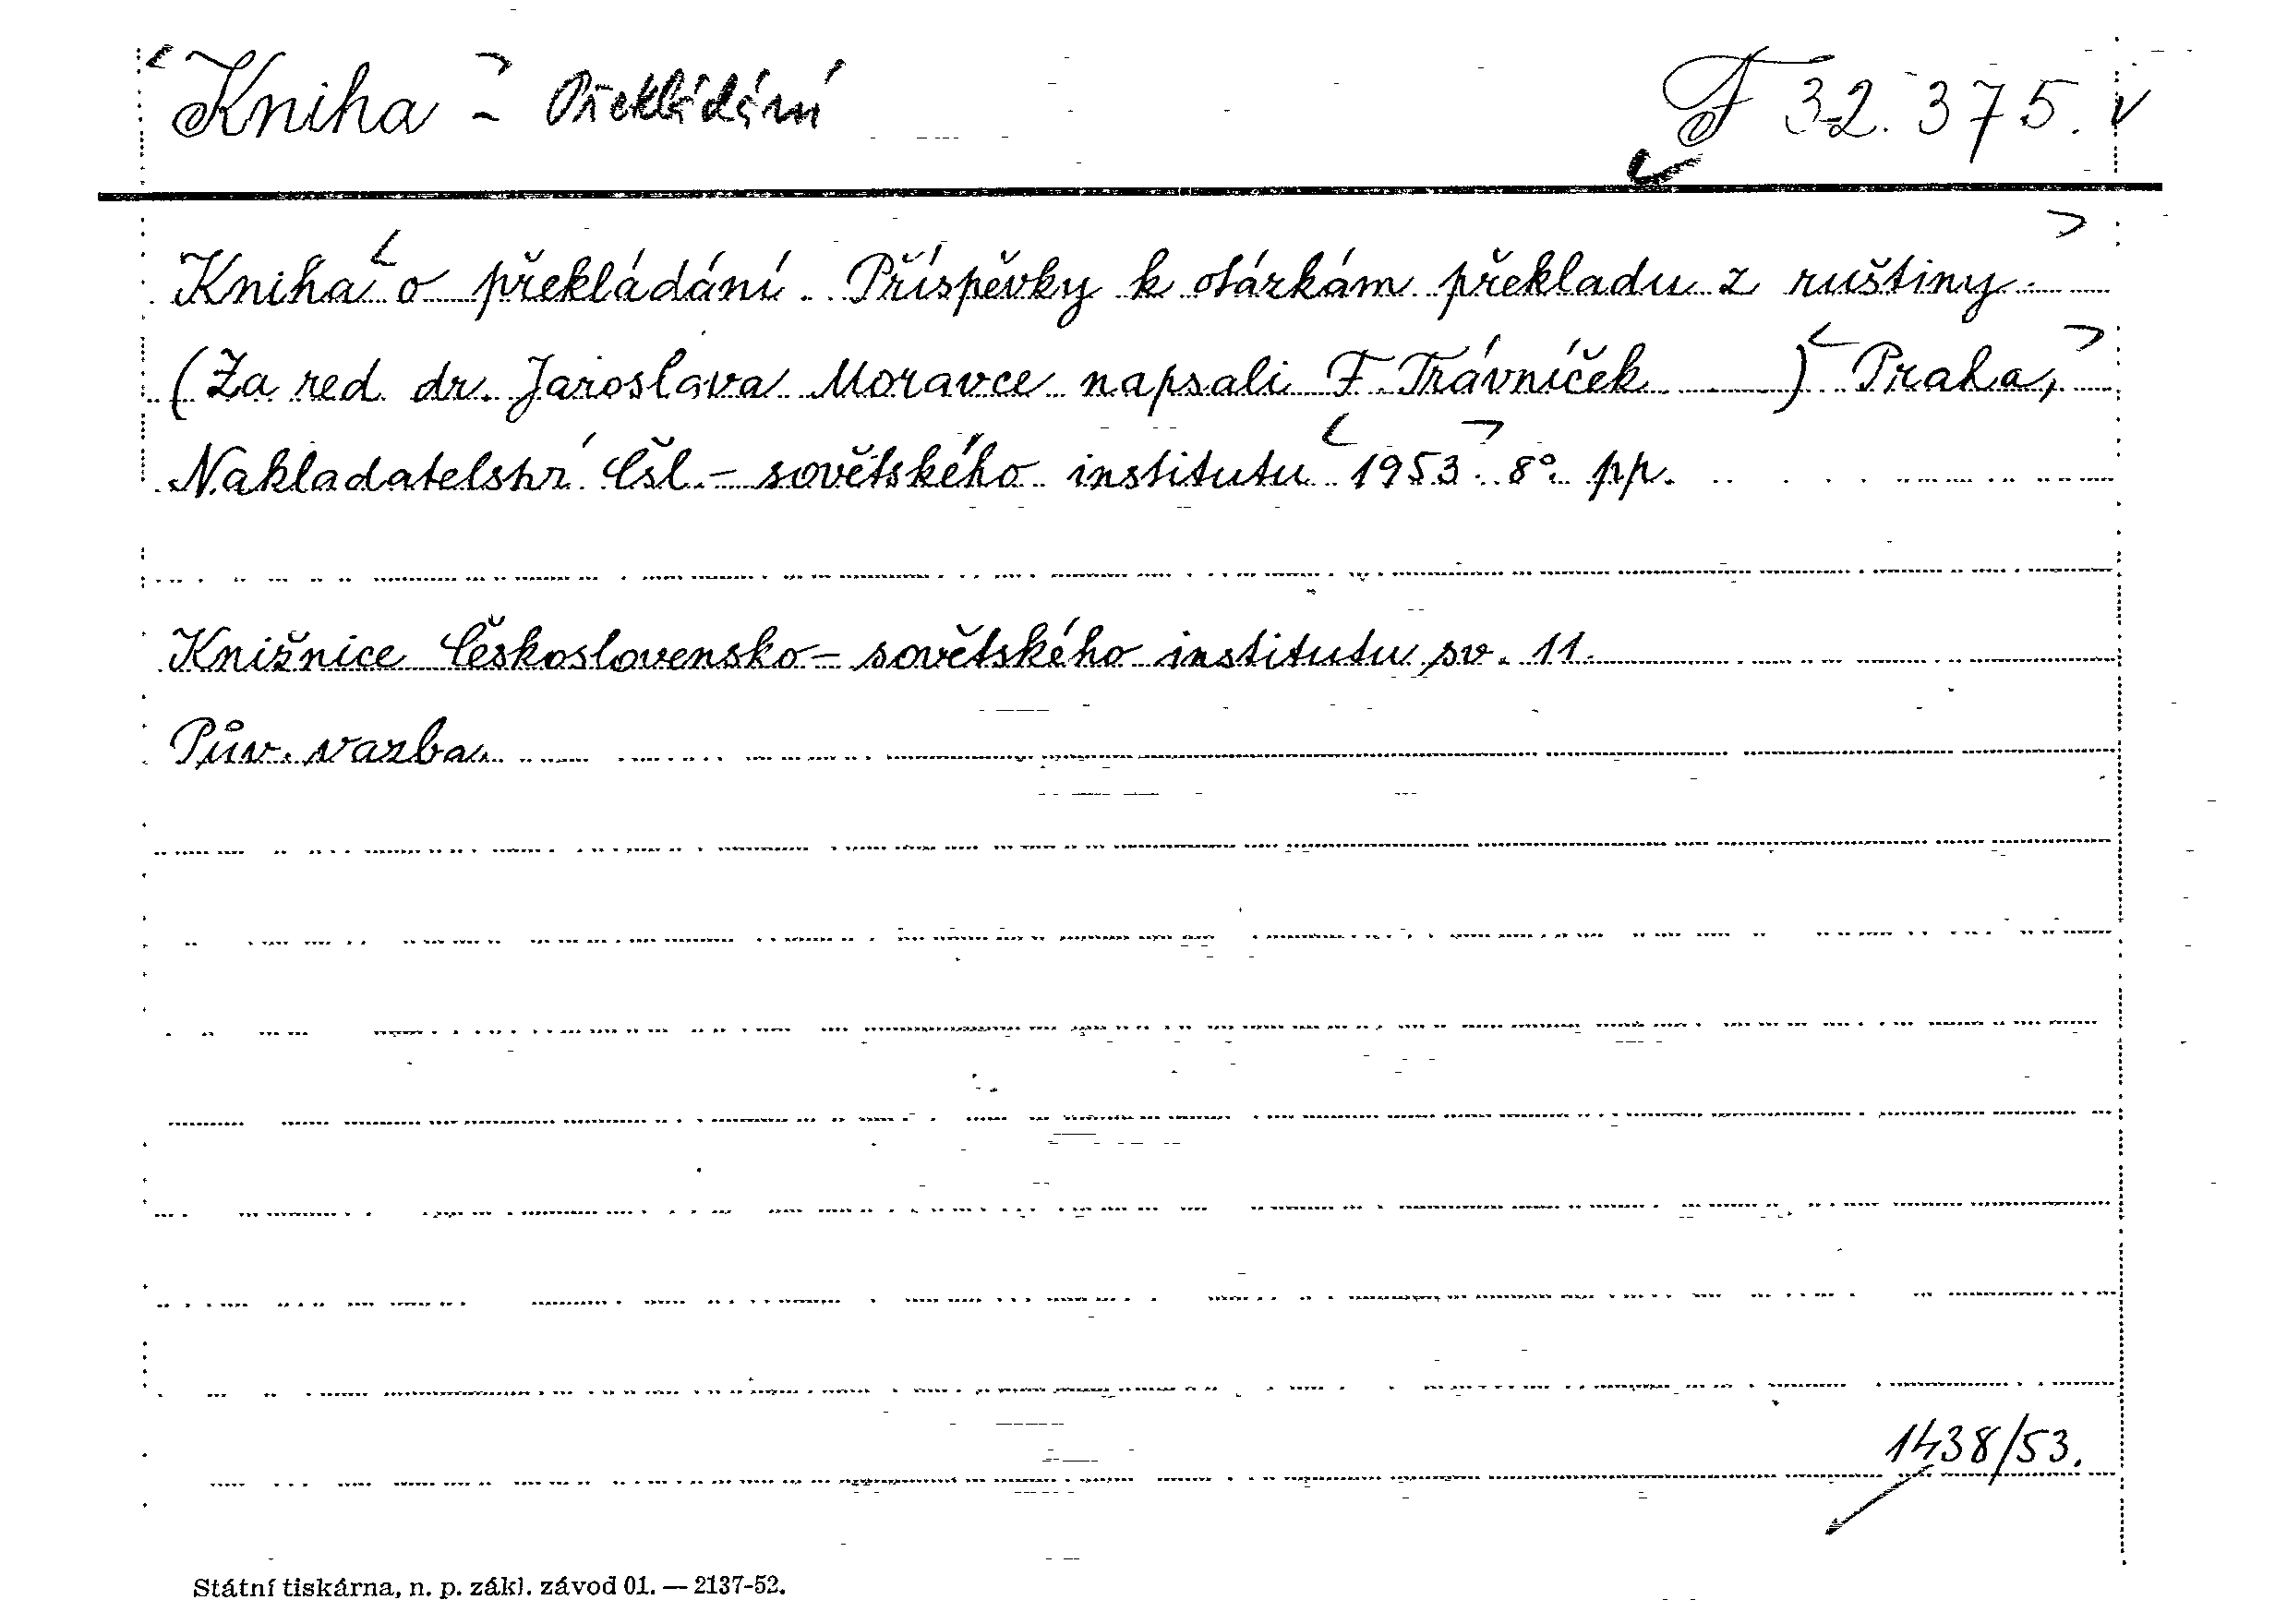 Kniha - Překládání F 32.375.
Kniha o překládání. Příspěvky k otázkám překladu z ruštiny.
(Za red. dr. Jaroslava Moravce napsali F. Trávníček . . .) Praha,
Nakladatelství Čsl.-sovětského institutu 1953. 8°. pp.
Knižnice Československo-sovětského institutu sv. 11.
Pův. vazba.
1438/53.
Státní tiskárna, n. p. zákl. závod 01. — 2137-52.